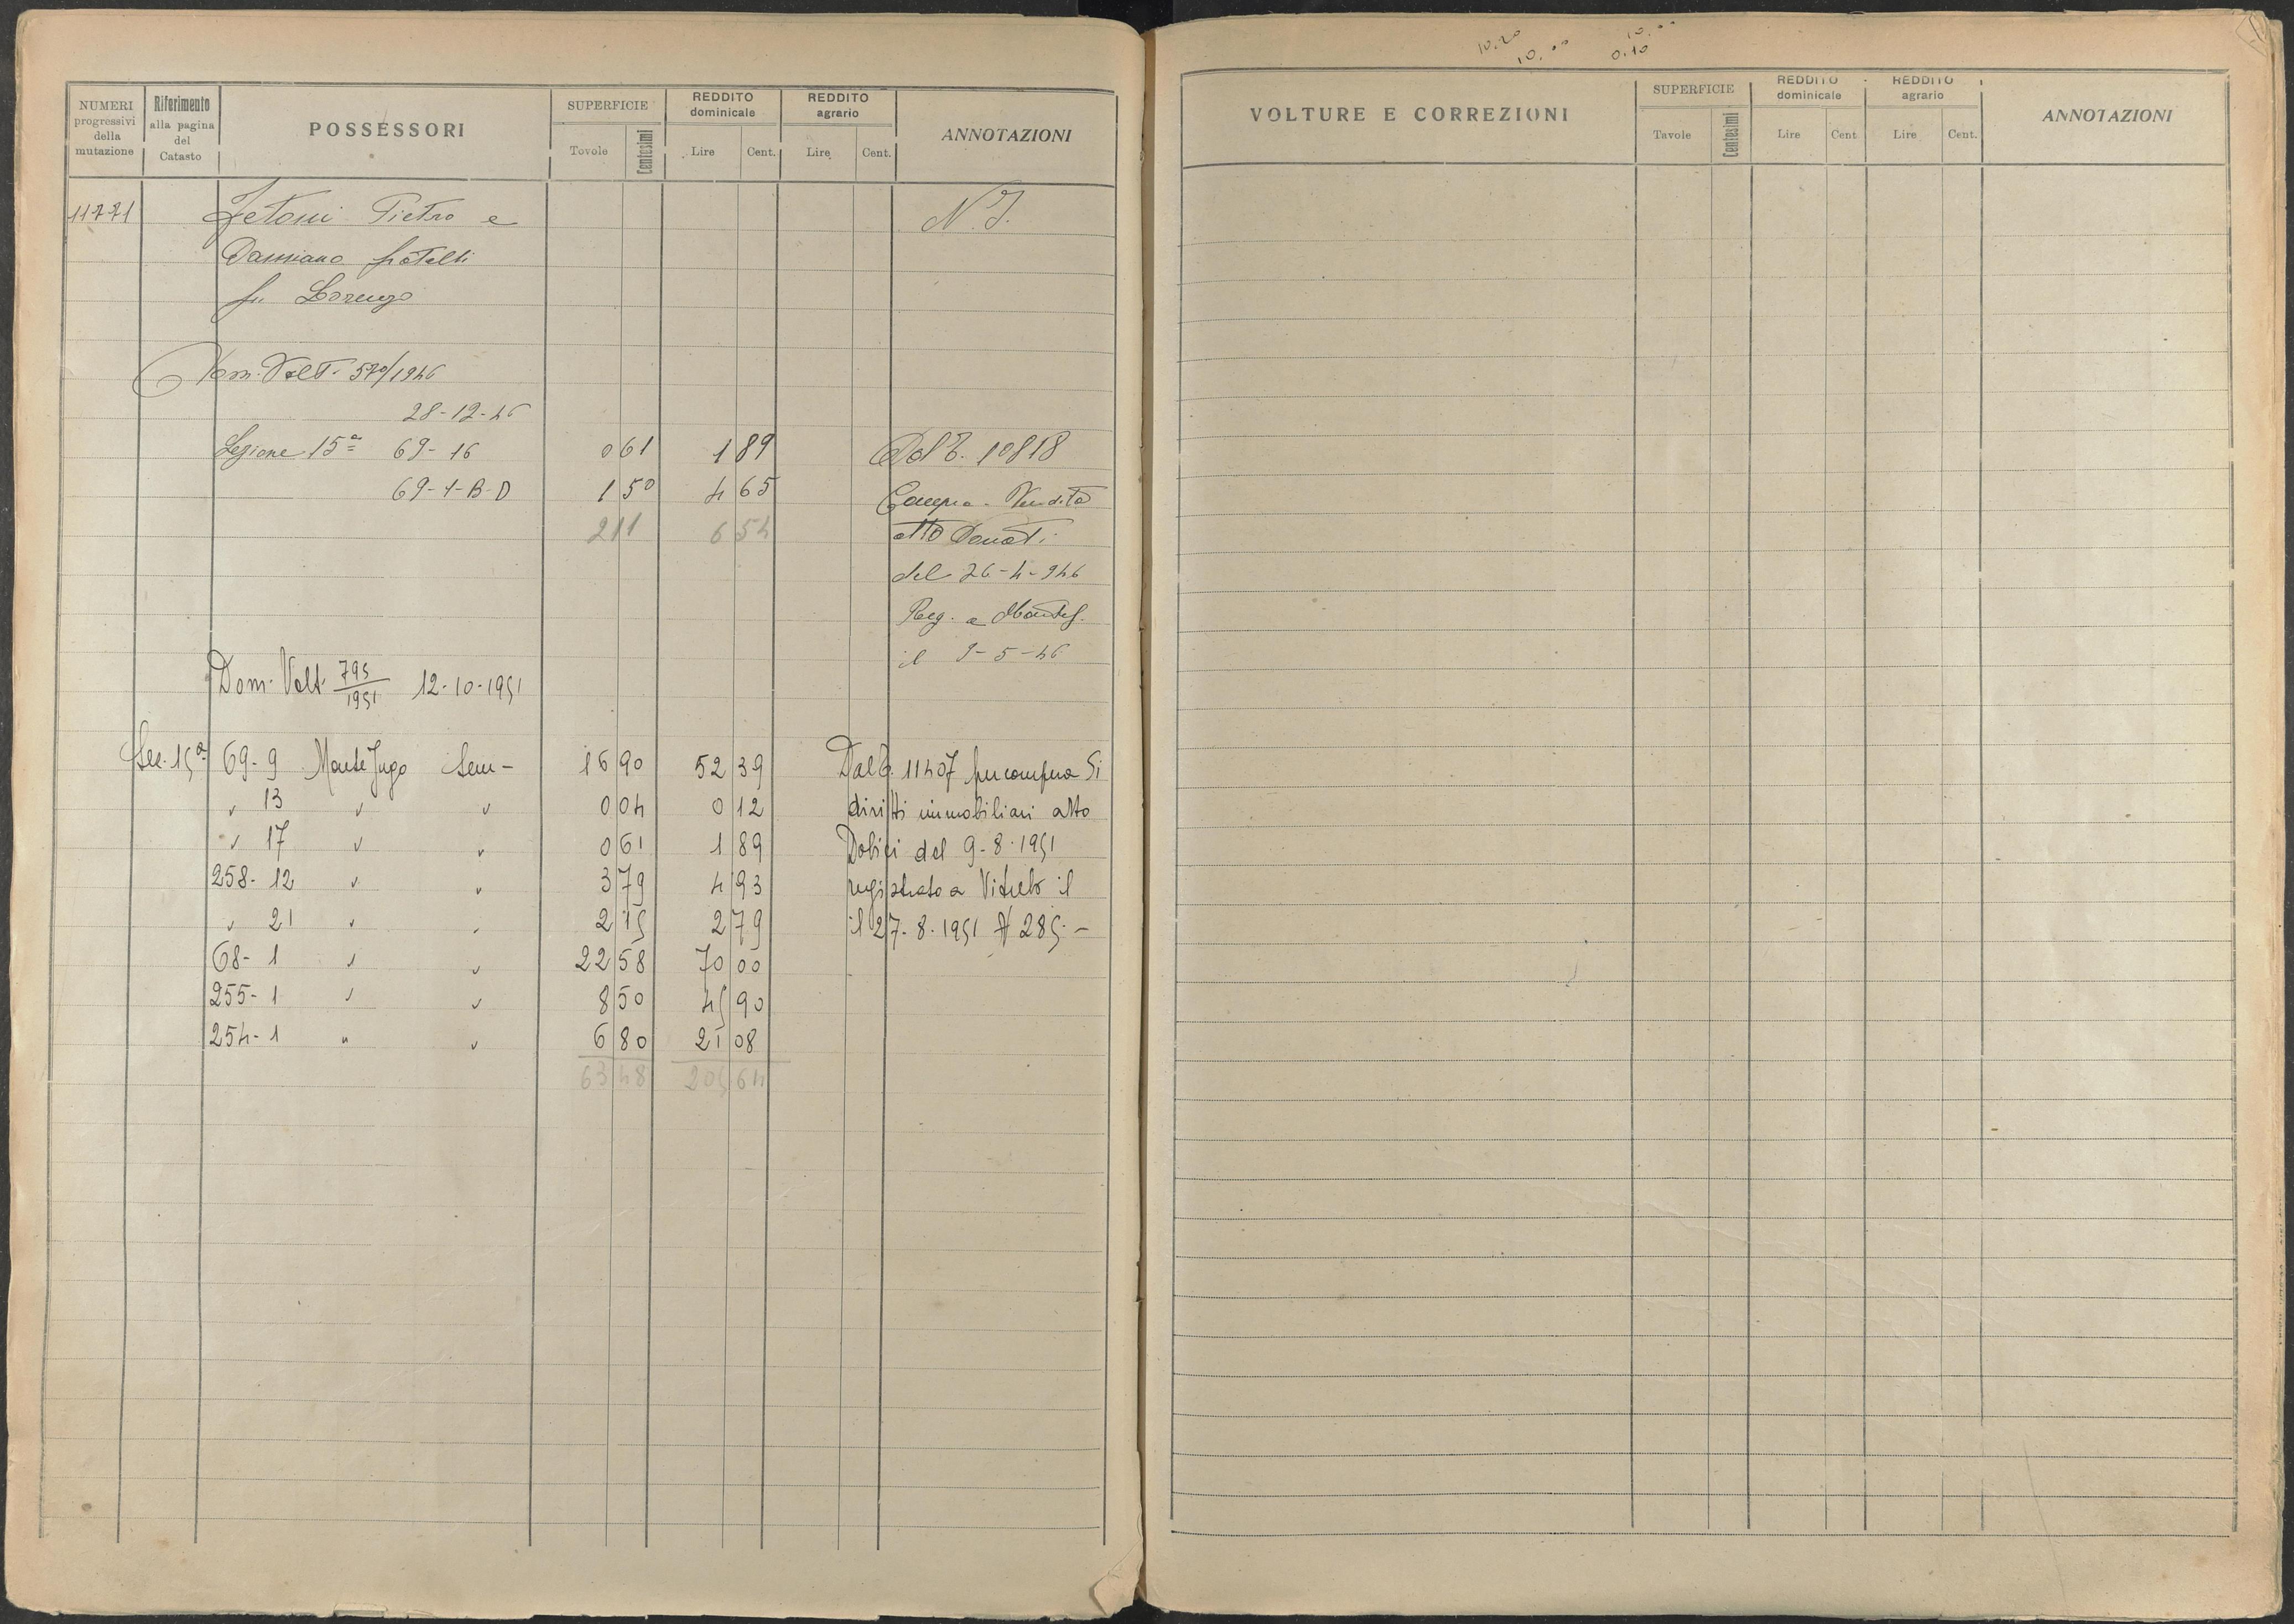 NUMERI progressivi della mutazione
Riferimento alla pagina del Catasto
POSSESSORI
SUPERFICIE
Tavole
Centesimi
REDDITO dominicale
Lire
Cent.
REDDITO agrario
Lire
Cent.
ANNOTAZIONI
Pietro e
N. I.
Damiano fratelli
fu Lorenzo
Dom. Volt. 570/1946
28-12-46
Sezione 15ª 69-16 0 61 1 89 Dal 10818
69-1-B-D 1 50 4 65 Compra-Vendita
2 11 6 54 atto Donati
del 26-4-946
Reg. a
il 9-5-46
Dom. Volt. 795/1951 12-10-1951
Sez. 15ª 69-9 Monte Jugo Sem- 16 90 52 39 Dal 11407 per compra di
" 13 " " 0 04 0 12 diritti immobiliari atto
" 17 " " 0 61 1 89 del 9-8-1951
258-12 " " 3 79 4 93 registrato a Viterbo il
" 21 " " 2 15 2 79 il 27-8-1951 N 285.-
68-1 " " 22 58 70 00
255-1 " " 8 50 45 90
254-1 " " 6 80 21 08
63 48 205 64
10.20 10.00
10.00 0.10
VOLTURE E CORREZIONI
SUPERFICIE
Tavole
Centesimi
REDDITO dominicale
Lire
Cent
REDDITO agrario
Lire
Cent.
ANNOTAZIONI